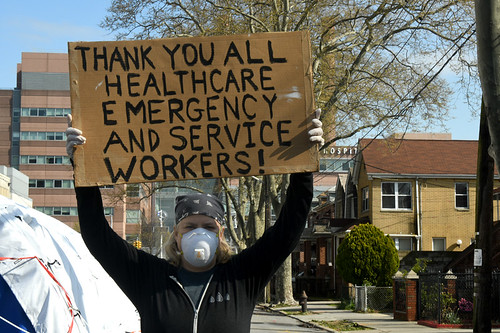 THANK YOU ALL
HEALTHCARE
EMERGENCY
AND SERVICE
WORKERS!
HOSPIT